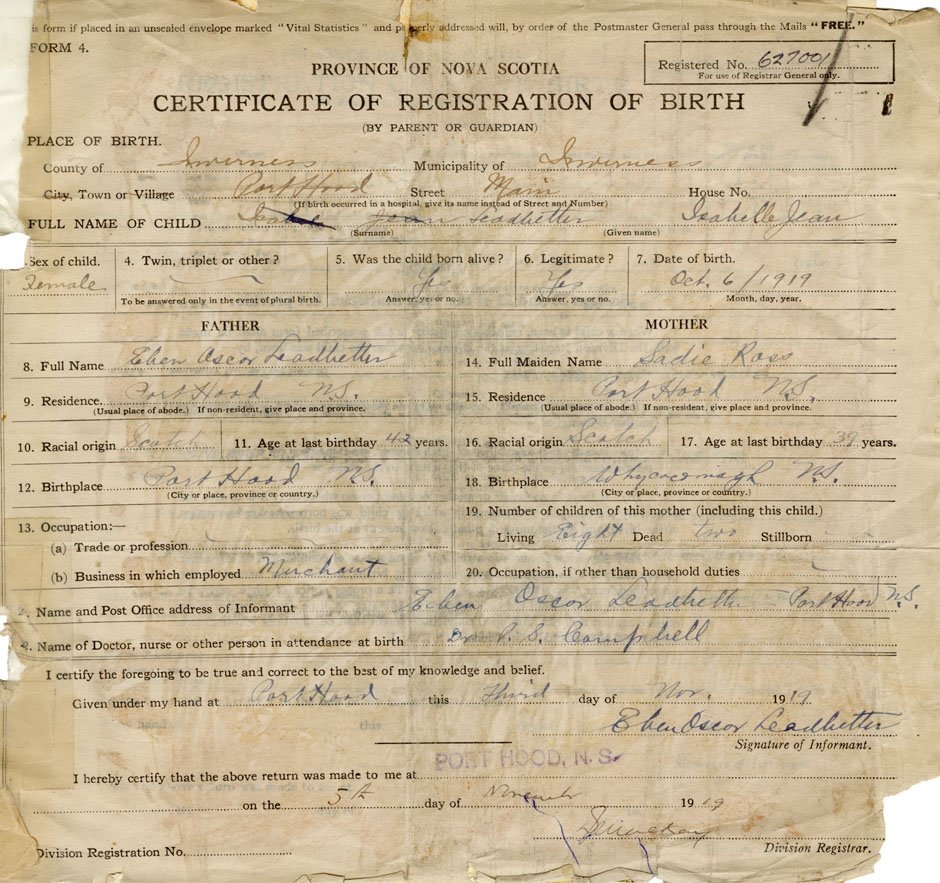 is form if placed in an unsealed envelope marked "Vital Statistics" and properly addressed will, by order of the Postmaster General pass through the Mails "FREE."
FORM 4.
Registered No. 627001
For use of Registrar General only.
PROVINCE OF NOVA SCOTIA
CERTIFICATE OF REGISTRATION OF BIRTH
(BY PARENT OR GUARDIAN)
PLACE OF BIRTH.
County of Inverness Municipality of Inverness
City, Town or Village Port Hood Street Main House No.
(If birth occurred in a hospital, give its name instead of Street and Number)
FULL NAME OF CHILD Jean Leadbetter Isabelle Jean
(Surname) (Given name)
Sex of child. 4. Twin, triplet or other? 5. Was the child born alive? 6. Legitimate? 7. Date of birth.
Female Yes Yes Oct. 6/1919
To be answered only in the event of plural birth. Answer, yes or no. Answer, yes or no. Month, day, year.
FATHER MOTHER
8. Full Name Eben Oscor Leadbetter 14. Full Maiden Name Sadie Ross
9. Residence Port Hood N.S. 15. Residence Port Hood N.S.
(Usual place of abode.) If non-resident, give place and province. (Usual place of abode.) If non-resident, give place and province.
10. Racial origin Scotch 11. Age at last birthday 42 years. 16. Racial origin Scotch 17. Age at last birthday 39 years.
12. Birthplace Port Hood N.S. 18. Birthplace Whycocomagh N.S.
(City or place, province or country.) (City or place, province or country.)
13. Occupation:— 19. Number of children of this mother (including this child.)
(a) Trade or profession Living Eight Dead two Stillborn
(b) Business in which employed Merchant 20. Occupation, if other than household duties
Name and Post Office address of Informant Eben Oscor Leadbetter Port Hood N.S.
Name of Doctor, nurse or other person in attendance at birth Dr. P. S. Campbell
I certify the foregoing to be true and correct to the best of my knowledge and belief.
Given under my hand at Port Hood this Third day of Nov. 1919
Eben Oscor Leadbetter
Signature of Informant.
I hereby certify that the above return was made to me at PORT HOOD, N.S.
on the 5th day of November 1919
Division Registration No. Division Registrar.